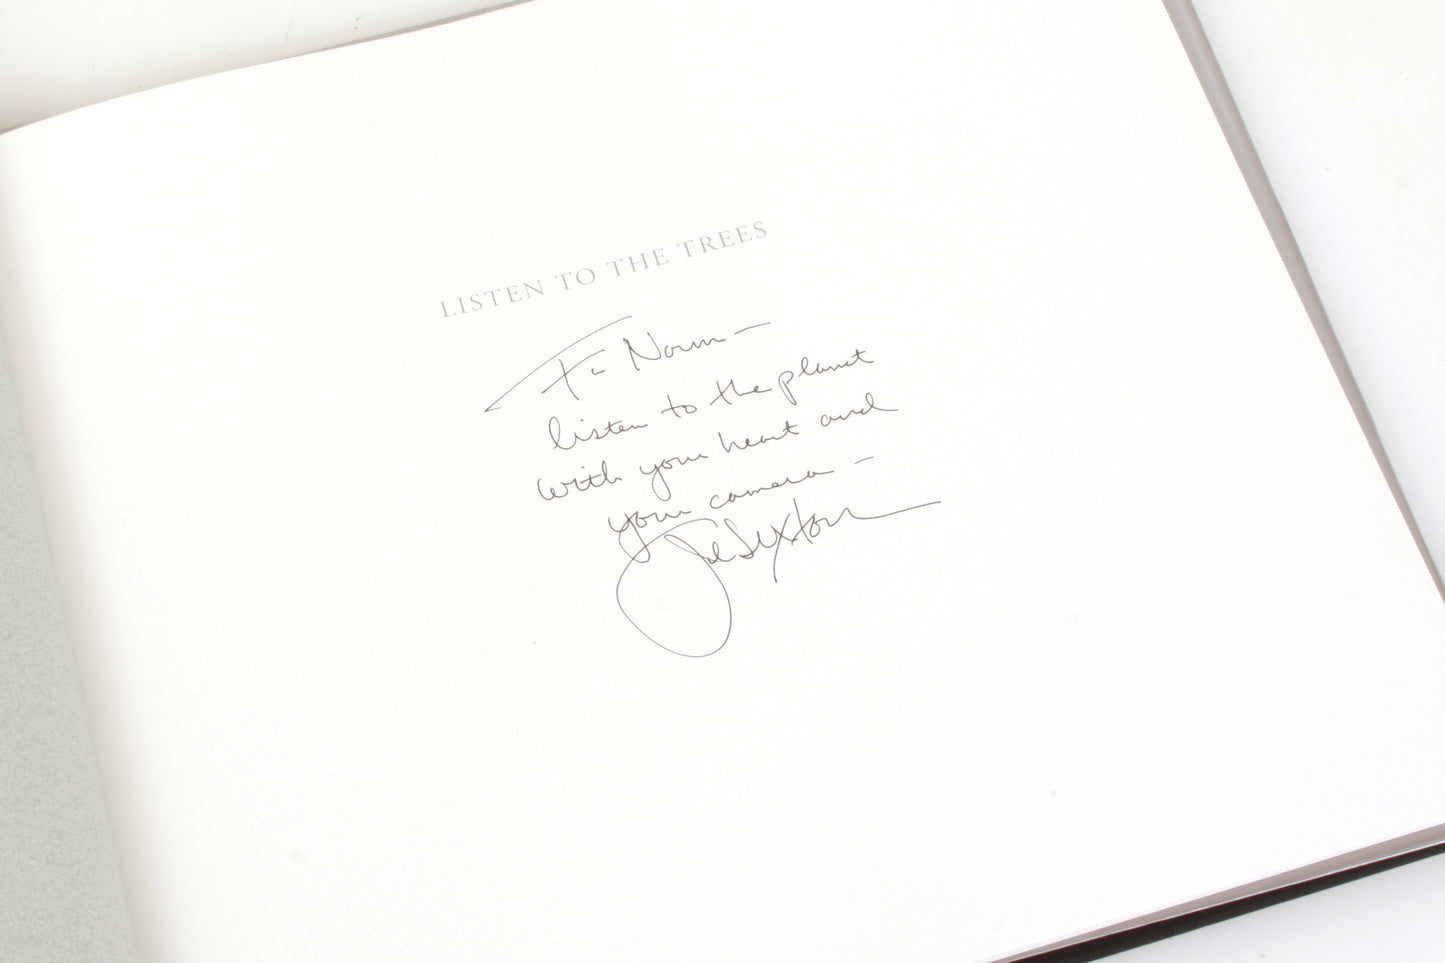 LISTEN TO THE TREES
To Norm —
listen to the planet
with your heart and
your camera —
John Sexton